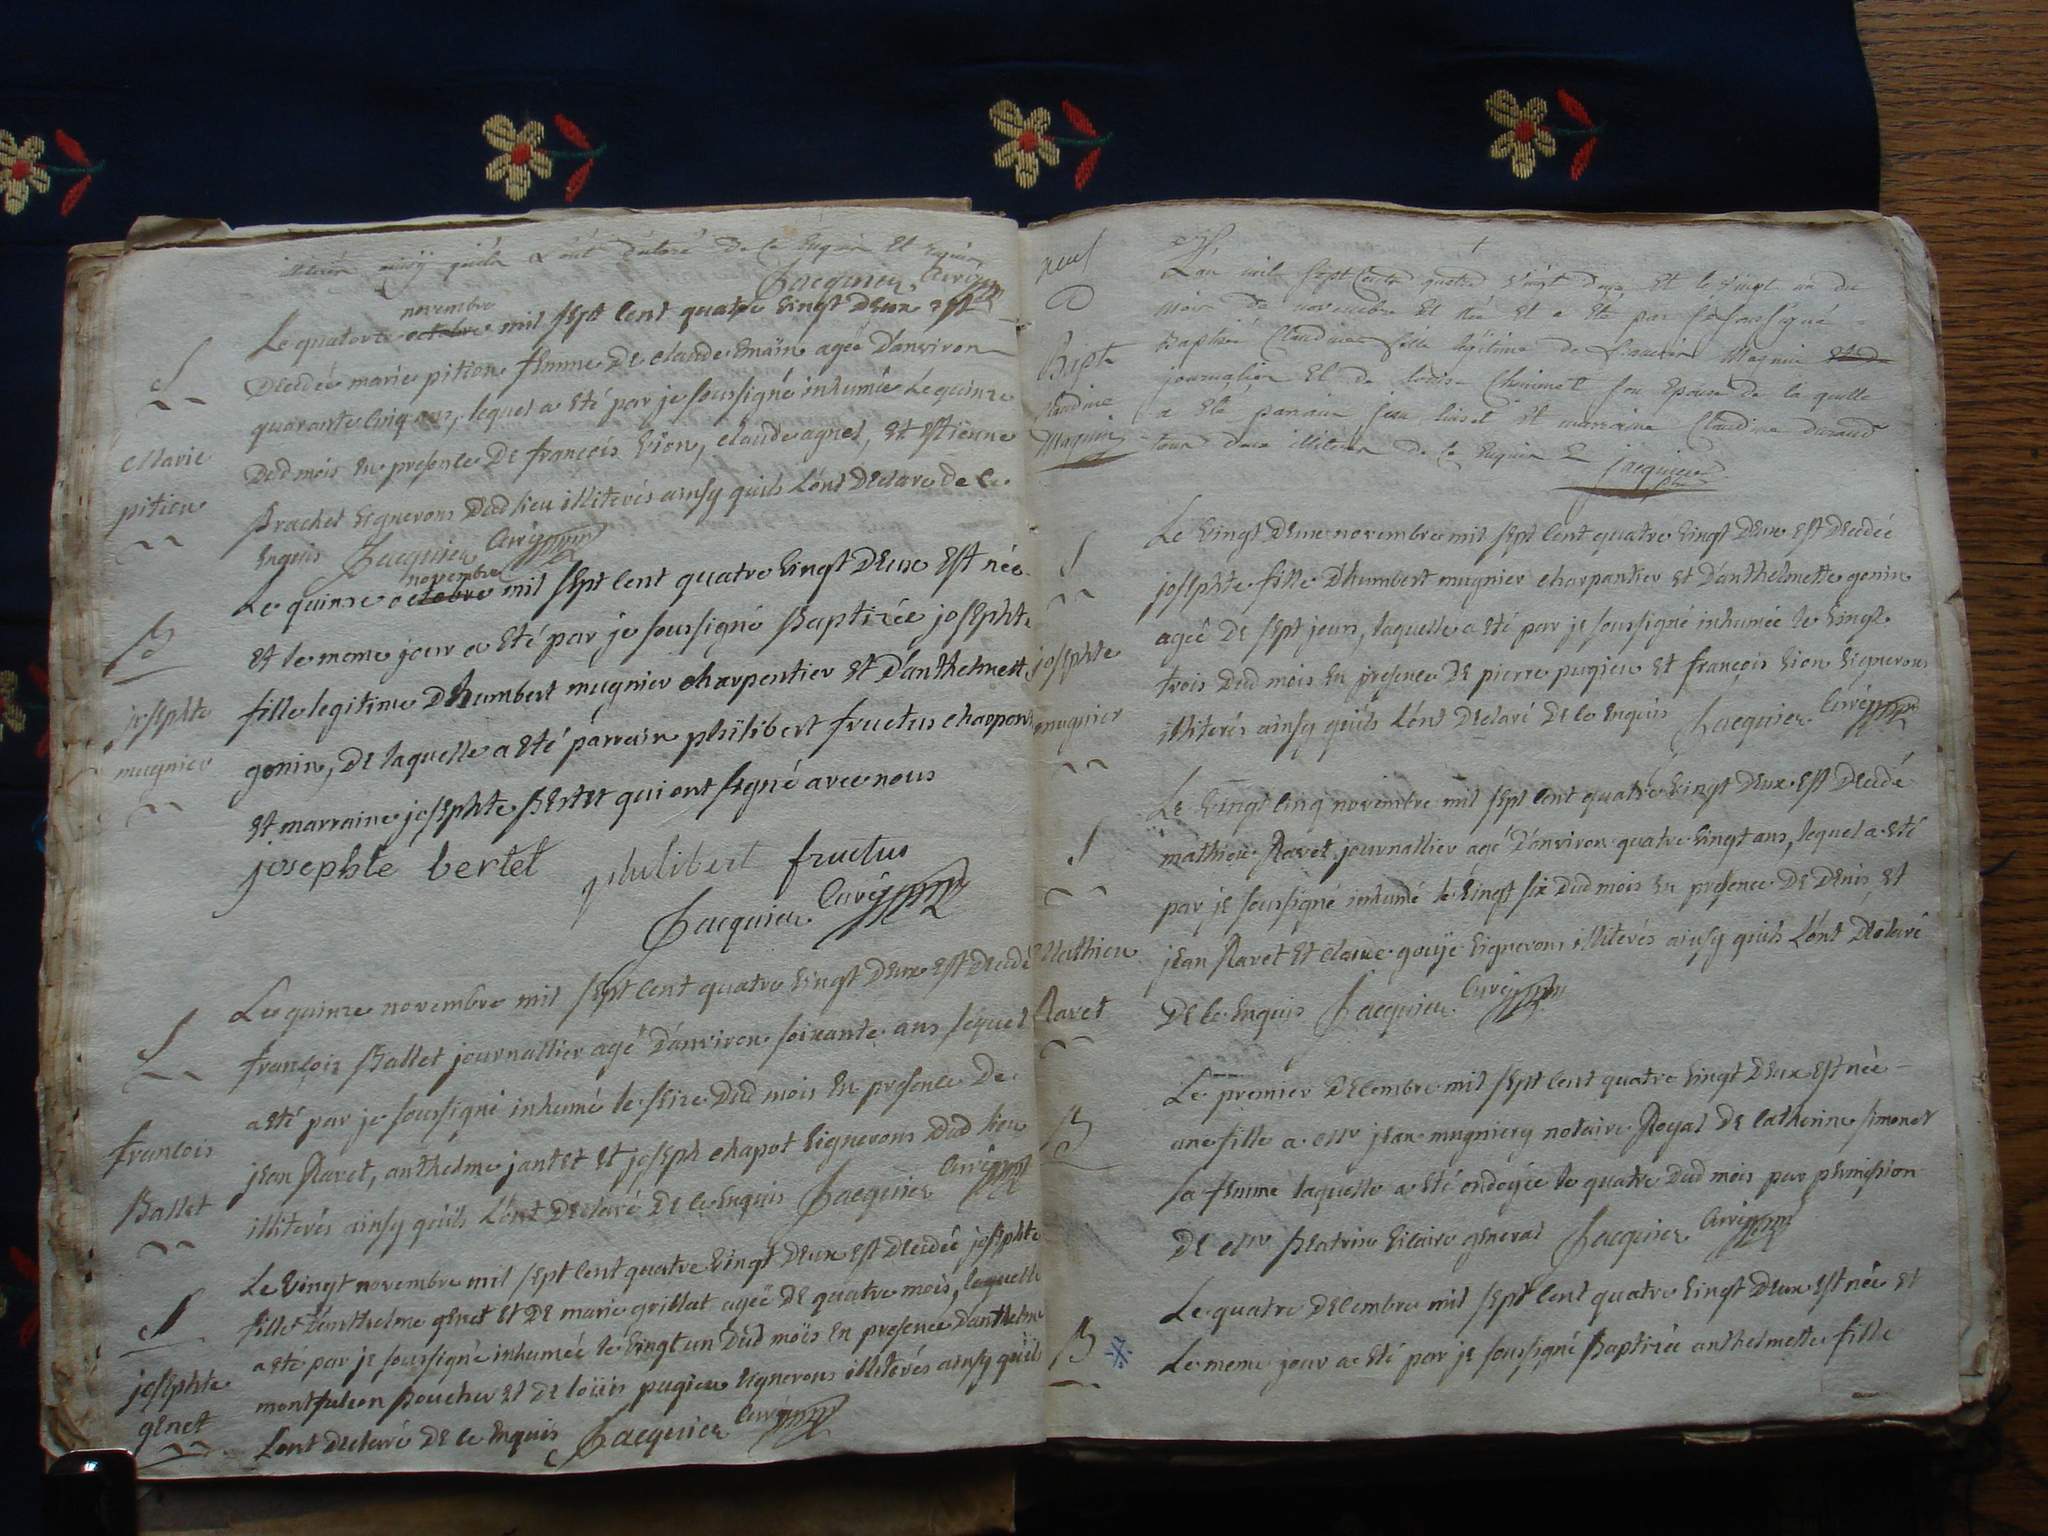 illiterés ainsy quils L'ont declaré de ce Enquis Et requis
Jacquier Curé
novembre
Le quatorze octobre mil sept Cent quatre Vingt Deux Est
S
Decedée marie pition femme De claude Emain ageé D'anviron
quarante Cinq ans, lequel a Eté par je soussigné inhumée Le quinze
Marie
Dud mois En presence De françois Vion, claude agnel, et Estienne
pition
Brachet Vignerons Dud lieu illiterés ainsy quils L'ont Declaré de Ce
Enquis Jacquier Curé
novembre
Le quinze octobre mil sept Cent quatre Vingt Deux Est née
B
Et le meme jour a Eté par je soussigné Baptizée josephte
josephte
fille legitime D'humbert mugnier charpentier Et D'anthelmette
mugnier
gonin, De laquelle a Eté parrain philibert fructus charpent
Et marraine josephte Bertet qui ont signé avec nous
josephte bertet philibert fructus
Jacquier Curé
Le quinze novembre mil sept Cent quatre Vingt Deux Est Decedé
S
françois Ballet journallier agé D'anviron soixante ans lequel
a Eté par je soussigné inhumé le seize Dud mois En presence De
françois
jean Ravet, anthelme jantet Et joseph chapot Vignerons Dud lieu
Ballet
illiterés ainsy quils L'ont Declaré De Ce Enquis Jacquier Curé
Le Vingt novembre mil sept Cent quatre Vingt Deux Est Decedée josephte
S
fille D'anthelme genet Et De marie grillat ageé De quatre mois, laquelle
a Eté par je soussigné inhumée le Vingt un Dud mois En presence D'anthelme
josephte
montfalcon Boucher Et De loüis pugieu Vignerons illiterés ainsy quils
genet
L'ont Declaré De Ce Enquis Jacquier Curé
L'an mil sept Cents quatre Vingt deux Et le Vingt un du
mois de novembre Et née Et a Eté par Je soussigné
Bapt
Baptisé Claudine fille légitime de Magnin
Claudine
journaglier Et de Louise Chiminet son Epouse de la quelle
Magnin
a Eté parrain Jean Et marraine Claudine durand
tous deux illiteres de Ce Enquis Jacquier
Le Vingt Deux novembre mil sept Cent quatre Vingt Deux Est Decedée
S
josephte fille D'humbert mugnier charpantier Et D'anthelmette gonin
ageé De sept jours, laquelle a Eté par je soussigné inhumée le Vingt
josephte
trois Dud mois En presence De pierre pugieu Et françois Vion Vignerons
mugnier
illiterés ainsy quils L'ont Declaré De Ce Enquis Jacquier Curé
Le Vingt Cinq novembre mil sept Cent quatre Vingt Deux Est Decedé
S
mathieu Ravet journallier agé D'anviron quatre Vingt ans, lequel a Eté
par je soussigné inhumé le Vingt six Dud mois En presence De Denis Et
Mathieu
jean Ravet Et Claude gouje Vignerons illiterés ainsy quils L'ont Declaré
Ravet
De Ce Enquis Jacquier Curé
Le premier Decembre mil sept Cent quatre Vingt Deux Est née
B
une fille a mr jean mugniery notaire Royal De Catherine simonet
sa femme laquelle a Eté ondoyée le quatre Dud mois par permission
De mr Beatrix Vicaire general Jacquier Curé
Le quatre Decembre mil sept Cent quatre Vingt Deux Est née Et
B
Le meme jour a Eté par je soussigné Baptizée anthelmette fille